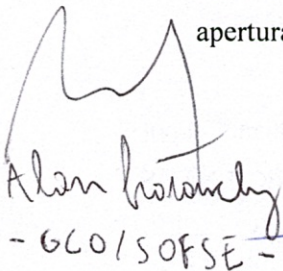 apertura
Alan
- GCO/SOFSE -